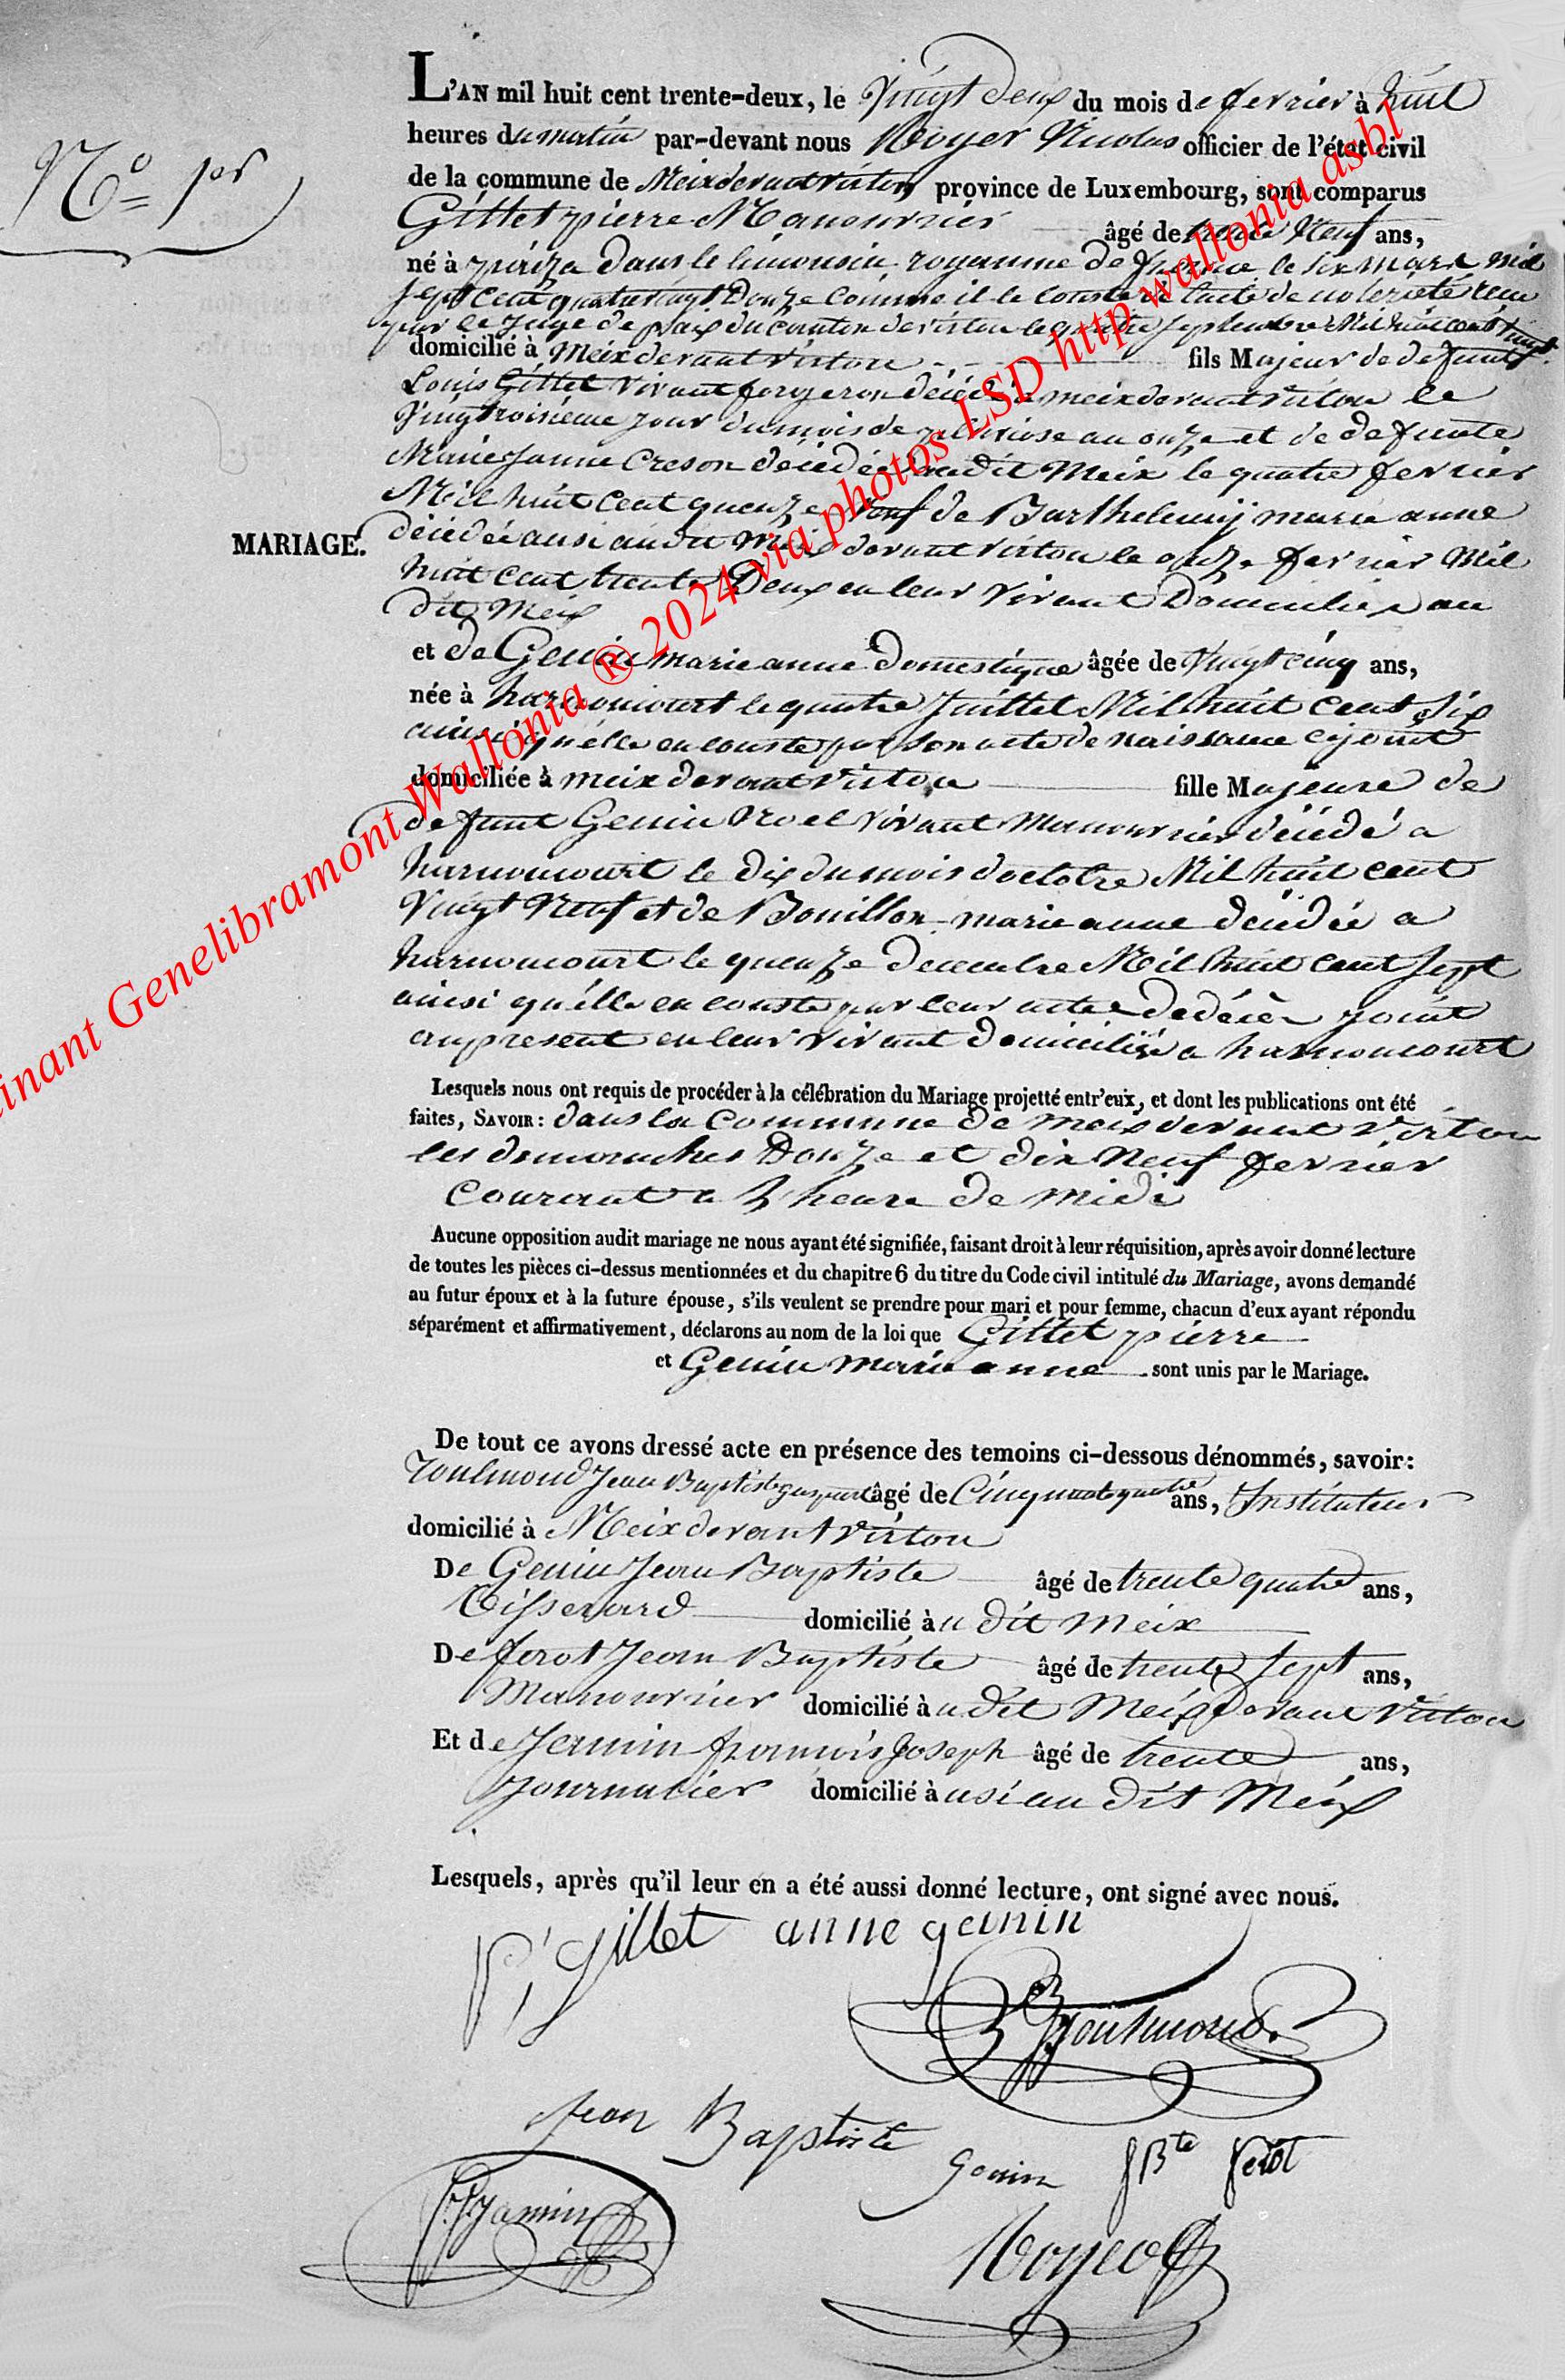 N° 1er
L'AN mil huit cent trente-deux, le Vingt Deux du mois de fevrier à huit
heures du matin par-devant nous Noyer Nicolas officier de l'état civil
de la commune de Meixdevantvirton province de Luxembourg, sont comparus
Gillet pierre Manouvrier âgé de trente Neuf ans,
né à dans le limousin royaume de france le six mars mil
sept cent quatrevingt Douze comme il le conste de l'acte de notorieté
par le juge de paix du canton de virton le septembre Mil huit cent
domicilié à Meixdevant virton fils Majeur de defunt
Louis Gillet vivant forgeron décédé à meixdevantvirton le
Vingtroisieme jour du mois de pluviose an onze et de defunte
Marie Janne Creson décédée audit Meix le quatre fevrier
Mil huit cent quenze veuf de Barthelemij marie anne
décédée ausi audit Meix devant virton le onze fevrier Mil
huit cent trente Deux en leur vivant Domicilies au
dit Meix
MARIAGE.
et de Genin marie anne Domestique âgée de Vingt cinq ans,
née à harnoncourt le quatre Juillet Mil huit cent six
ainsi qu'elle en conste par son acte de naissance cijoint
domiciliée à meix devant virton fille Majeure de
defunt Genin Noel vivant Manouvrier décédé a
harnoncourt le dix du mois doctobre Mil huit cent
Vingt Neuf et de Bouillon marie anne décédée a
harnoncourt le quenze decembre Mil huit cent sept
ainsi qu'élle en conste par leur acte de décès joint
au present en leur vivant domiciliés a harnoncourt
Lesquels nous ont requis de procéder à la célébration du Mariage projetté entr'eux, et dont les publications ont été
faites, SAVOIR: dans la Commune de Meix devant Virton
les dimanches Douze et dix Neuf fevrier
courant a heure de midi
Aucune opposition audit mariage ne nous ayant été signifiée, faisant droit à leur réquisition, après avoir donné lecture
de toutes les pièces ci-dessus mentionnées et du chapitre 6 du titre du Code civil intitulé du Mariage, avons demandé
au futur époux et à la future épouse, s'ils veulent se prendre pour mari et pour femme, chacun d'eux ayant répondu
séparément et affirmativement, déclarons au nom de la loi que Gillet pierre
et Genin marie anne sont unis par le Mariage.
De tout ce avons dressé acte en présence des temoins ci-dessous dénommés, savoir:
Toulmond Jean Baptiste gaspart âgé de Cinquantequatre ans, Instituteur
domicilié à Meix devant virton
De Genin Jean Baptiste âgé de trente quatre ans,
Tisserard domicilié à u dit Meix
De ferot Jean Baptiste âgé de trente sept ans,
Manouvrier domicilié à u dit Meix devant Virton
Et de Jamin francois Joseph âgé de trente ans,
Journalier domicilié à usi au dit Meix
Lesquels, après qu'il leur en a été aussi donné lecture, ont signé avec nous.
P, gillet anne genin
Toulmond
Jean Baptiste
Genin JBte ferot
F J Jamin
Noyer
inant Genelibramont Wallonia ® 2024 via photos LSD http wallonia asbl